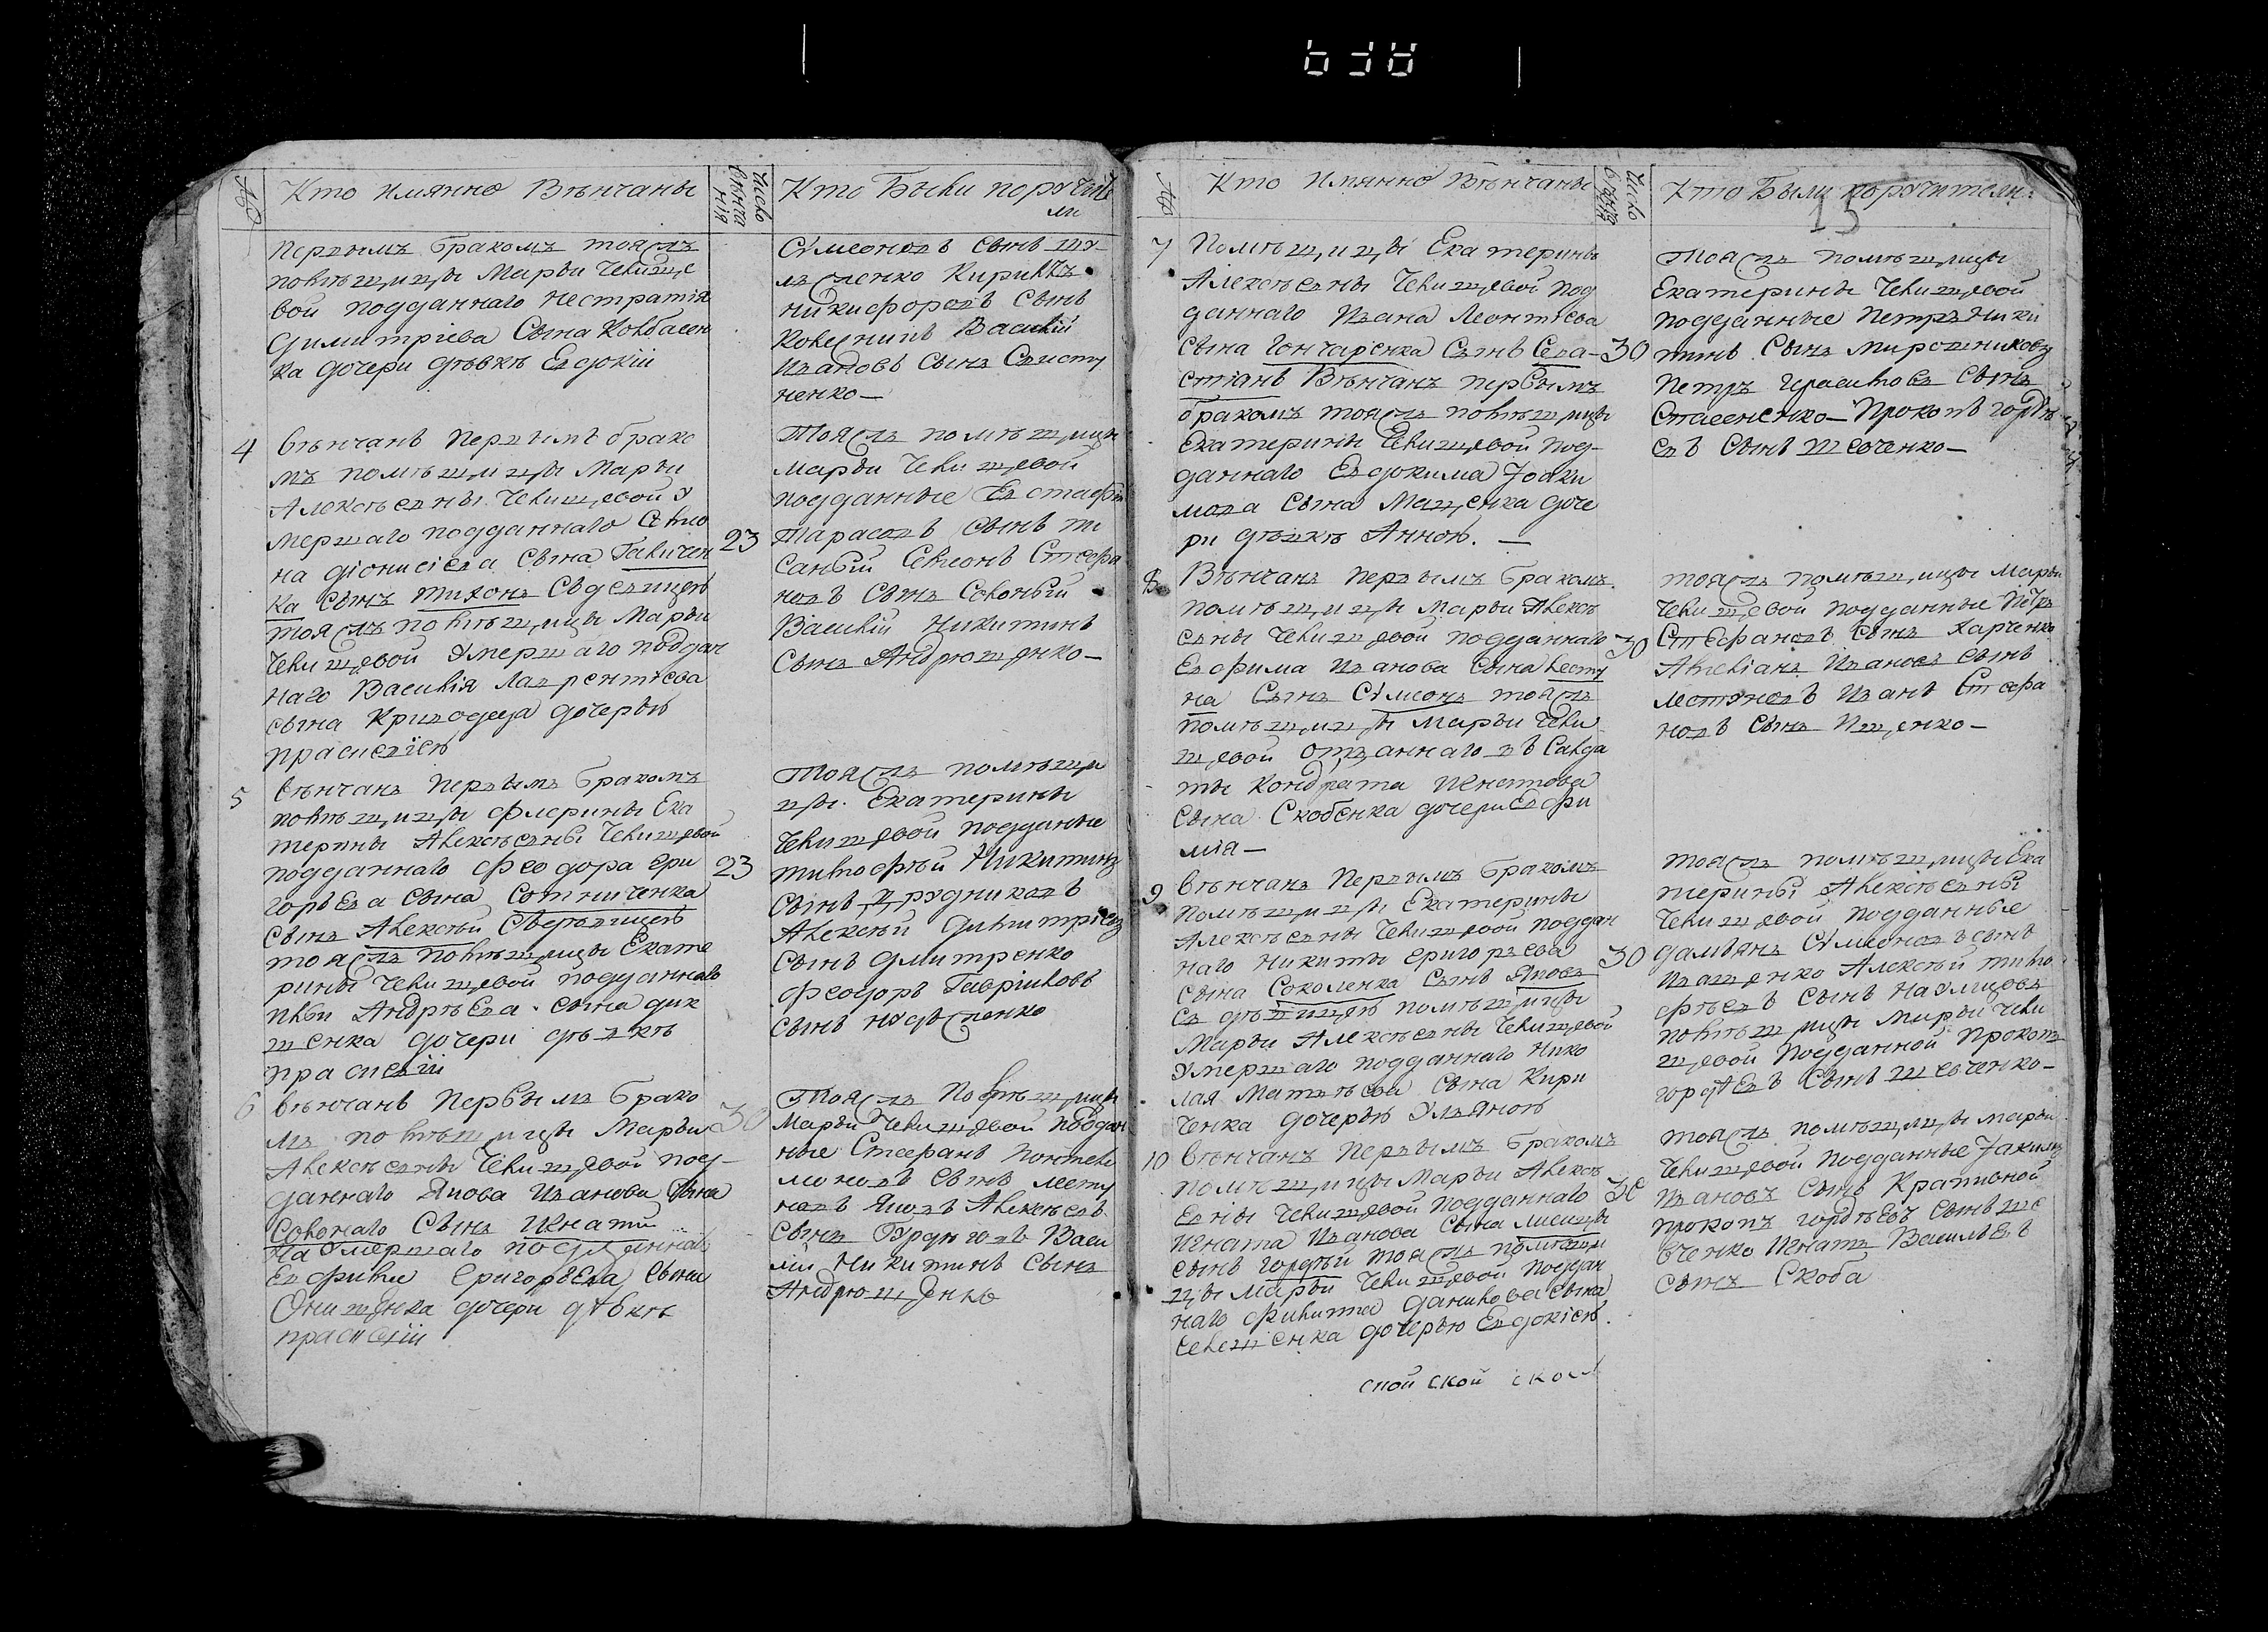 №
Кто имянно Вѣнчаны
Число вѣнчанія
Кто Были поручители
Первымъ бракомъ тояжъ
помѣщицы Марьи Чели­щe
вой подданнаго Нестратія
Димитріева Сына Колбасен
ка дочери дѣвкѣ Евдокіи
Сѵмеоновъ Сынъ
Кирилъ
Никифоровъ Сынъ
Василій
Ивановъ Сынъ Свисту
ненко —
4
вѣнчанъ Первымъ брако
мъ помѣщицы Марьи
Алексѣевны Челищевой у
мершаго подданнаго Сѵмо
на Діонисіева Сына Галичен
ка Сынъ Тихонъ Сдевицею
тояжъ помѣщицы Марьи
Челищевой умершаго поддан
наго Василія Лаврентіева
сына Криводеда дочерью
Праскевіею
23
Тояжъ помѣщицы
Марьи Челищевой
подданные Евстафій
Тарасовъ Сынъ
Стефа
новъ Сынъ Соломый
Василій Никитинъ
Сынъ Андрющенко —
5
вѣнчанъ Первымъ бракомъ
помѣщицы Ека
терины Алексѣевны Челищевой
подданнаго Феодора Гри
горьева сына Сотниченка
сынъ Алексѣй Сдевицею
тояжъ помѣщицы Екате
рины Челищевой подданнаго
Ильи Андрѣева сына
дочери дѣвкѣ
Праскевіи
23
Тояжъ помѣщи
цы Екатерины
Челищевой подданые
Тимофѣй Никитинъ
Сынъ
Алексѣй Димитріевъ
Сынъ Дмитренко
Феодоръ Гавриловъ
Сынъ
6
вѣнчанъ Первымъ брако
мъ помѣщицы Марьи
Алексѣевны Челищевой под-
даннаго Якова Иванова Сына
Солонаго Сынъ Игнатій
на умершаго подданнаго
Григорьева Сына
Онищенка дочери дѣвкѣ
Праскевіи
30
Тояжъ Помѣщицы
Марьи Челищевой поддан
ные Стефанъ Понтеле
моновъ Сынъ Месту
новъ Яковъ Алексѣевъ
Сынъ Васи
лій Никитинъ Сынъ
Андрющенко
№
Кто Имянно Вѣнчаны
Число вѣнчанія
Кто Были поручители:
15
7
Помѣщицы Екатерины
Алексѣевны Челищевой под
даннаго Ивана Леонтіева
Сына Гончаренка Сынъ Сева-
стіанъ Вѣнчанъ первымъ
бракомъ тояжъ помѣщицы
Екатерины Челищевой под-
даннаго Евдокима Іоаки
мова Сына Мащенка доче
ри дѣвкѣ Анною. —
30
Тояжъ помѣщицы
Екатерины Челищевой
подданные Петръ Ники
тинъ Сынъ Мирошниковъ
Петръ Герасимовъ Сынъ
Стасененко — Прокопъ Гордѣ
евъ Сынъ Шевченко —
8
Вѣнчанъ Первымъ бракомъ
помѣщицы Марьи Алексѣ
евны Челищевой подданнаго
Ефима Иванова Сына Месту
на Сынъ Сѵмеонъ тояжъ
помѣщицы Марьи Чели
щевой отданнаго въ Салда
ты Кондрата Игнатова
Сына Скобенка дочери Евфи
мія —
30
тояжъ помѣщицы Марьи
Челищевой подданные Петръ
Стефановъ Сынъ Харченко
Ивановъ Сынъ
Местуновъ Иванъ Стефа
новъ Сынъ Ищенко —
9
Вѣнчанъ Первымъ бракомъ
помѣщицы Екатерины
Алексѣевны Челищевой поддан
наго Никиты Григорьева
Сына Соколенка Сынъ Яковъ
съ дѣвицею помѣщицы
Марьи Алексѣевны Челищевой
умершаго подданнаго Нико
лая Матвѣева Сына Кири
ченка дочерью Ульяною
30
тояжъ помѣщицы Ека
терины Алексѣевны
Челищевой подданные
Даміянъ Сѵмеоновъ Сынъ
Иващенко Алексѣй Тимо
фѣевъ Сынъ Наумцовъ
помѣщицы Марьи Чели
щевой подданной Прокопъ
Гордѣевъ Сынъ Шевченко —
10
Вѣнчанъ Первымъ бракомъ
помѣщицы Марьи Алексѣ
евны Челищевой подданнаго
Игната Иванова Сына Лисицы
сынъ Гордѣй тояжъ помѣщи
цы Марьи Челищевой поддан
наго Филипа Данилова Сына
дочерью Евдокіею.
30
тояжъ помѣщицы Марьи
Челищевой подданные Іакимъ
Ивановъ Сынъ Крапивной
Прокопъ Гордѣевъ Сынъ Ше
вченко Игнатъ Васильевъ
сынъ Скоба
ской ской